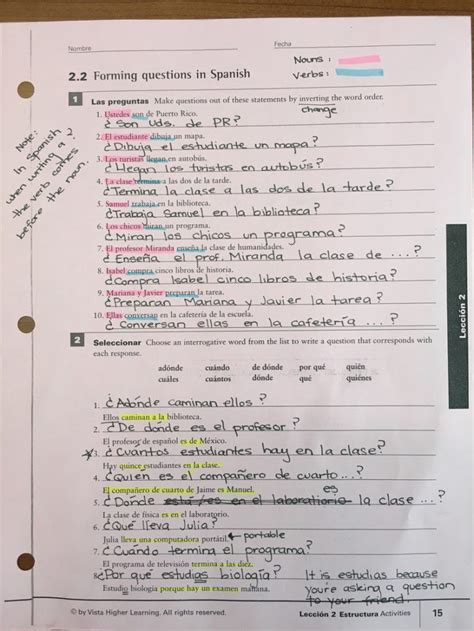 Nombre Fecha
Nouns :
Verbs :
2.2 Forming questions in Spanish
1 Las preguntas Make questions out of these statements by inverting the word order.
change
1. Ustedes son de Puerto Rico.
¿Son Uds. de PR?
2. El estudiante dibuja un mapa.
¿Dibuja el estudiante un mapa?
3. Los turistas llegan en autobús.
¿Llegan los turistas en autobús?
4. La clase termina a las dos de la tarde.
¿Termina la clase a las dos de la tarde?
5. Samuel trabaja en la biblioteca.
¿Trabaja Samuel en la biblioteca?
6. Los chicos miran un programa.
¿Miran los chicos un programa?
7. El profesor Miranda enseña la clase de humanidades.
¿Enseña el prof. Miranda la clase de ...?
8. Isabel compra cinco libros de historia.
¿Compra Isabel cinco libros de historia?
9. Mariana y Javier preparan la tarea.
¿Preparan Mariana y Javier la tarea?
10. Ellas conversan en la cafetería de la escuela.
¿Conversan ellas en la cafetería ...?
Note:
In Spanish
when writing a ?
the verb comes
before the noun.
2 Seleccionar Choose an interrogative word from the list to write a question that corresponds with
each response.
adónde cuándo de dónde por qué quién
cuáles cuántos dónde qué quiénes
1. ¿Adónde caminan ellos?
Ellos caminan a la biblioteca.
2. ¿De dónde es el profesor?
El profesor de español es de México.
*3. ¿Cuántos estudiantes hay en la clase?
Hay quince estudiantes en la clase.
4. ¿Quién es el compañero de cuarto...?
El compañero de cuarto de Jaime es Manuel.
es
5. ¿Dónde está/es en el laboratorio la clase ...?
La clase de física es en el laboratorio.
6. ¿Qué lleva Julia?
Julia lleva una computadora portátil. ← portable
7. ¿Cuándo termina el programa?
El programa de televisión termina a las diez.
8. ¿Por qué estudias biología?
Estudio biología porque hay un examen mañana.
It is estudias because
you're asking a question
to your friend.
Lección 2
© by Vista Higher Learning. All rights reserved. Lección 2 Estructura Activities 15